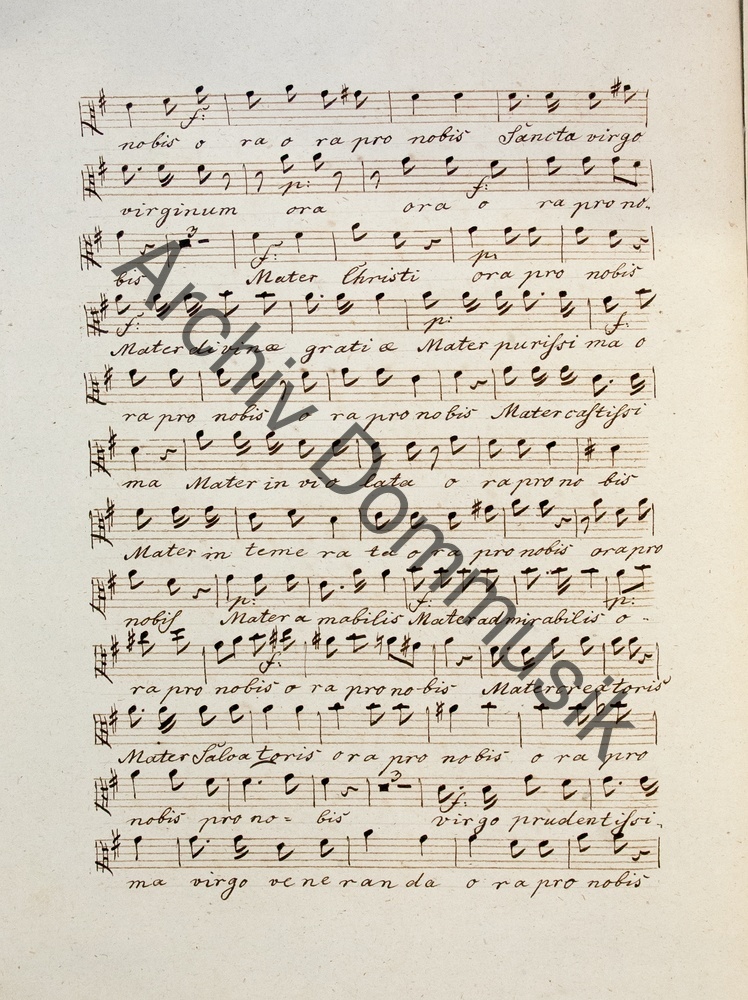 f:
nobis o ra o ra pro nobis Sancta virgo
p: f:
virginum ora ora o ra pro no-
3 f: p:
bis Mater Christi ora pro nobis
f: p: f:
Mater divinæ gratiæ Mater purissi ma o
ra pro nobis o ra pro nobis Mater castissi
ma Mater in vi o lata o ra pro no bis
Mater in teme ra ta o ra pro nobis ora pro
p: f: p:
nobis Mater a mabilis Mater admirabilis o -
f:
ra pro nobis o ra pro no bis Mater creatoris
Mater Salva toris ora pro nobis o ra pro
3 f:
nobis pro no- bis virgo prudentissi-
ma virgo ve ne ran da o ra pro nobis
Archiv Dommusik